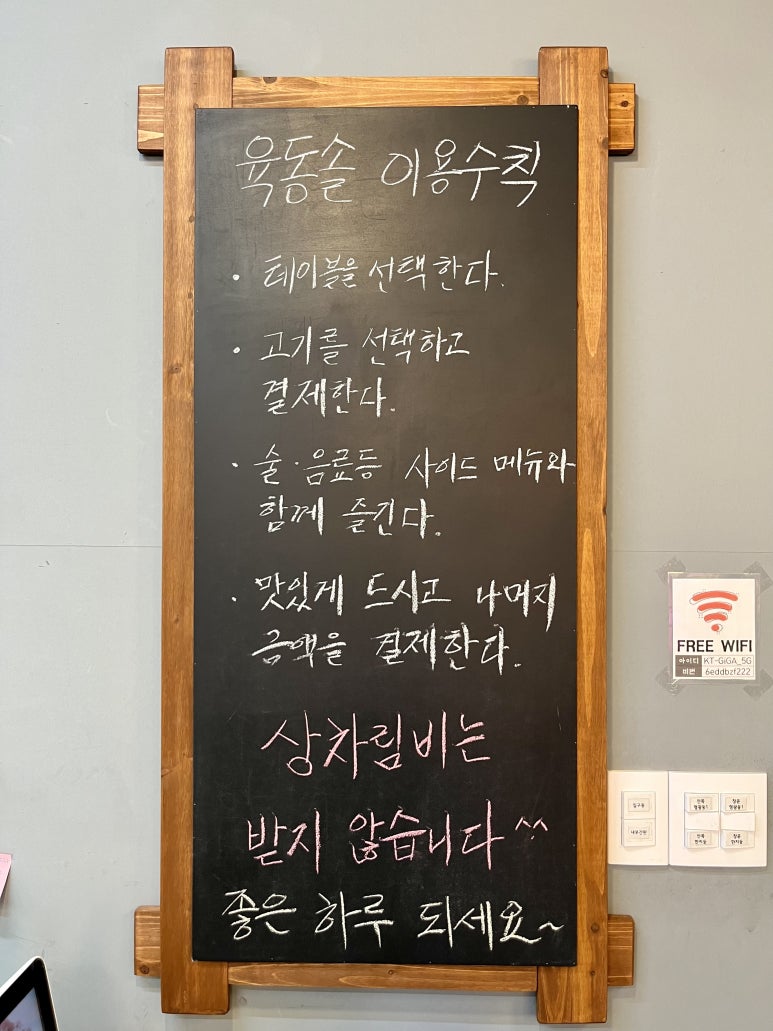 육동솔 이용수칙
· 테이블을 선택한다.
· 고기를 선택하고
결제한다.
· 술·음료등 사이드 메뉴와
함께 즐긴다.
· 맛있게 드시고 나머지
금액을 결제한다.
상차림비는
받지 않습니다^^
좋은 하루 되세요~
FREE WIFI
아이디 KT-GiGA_5G
비번 6eddbzf222
입구등
내부간판